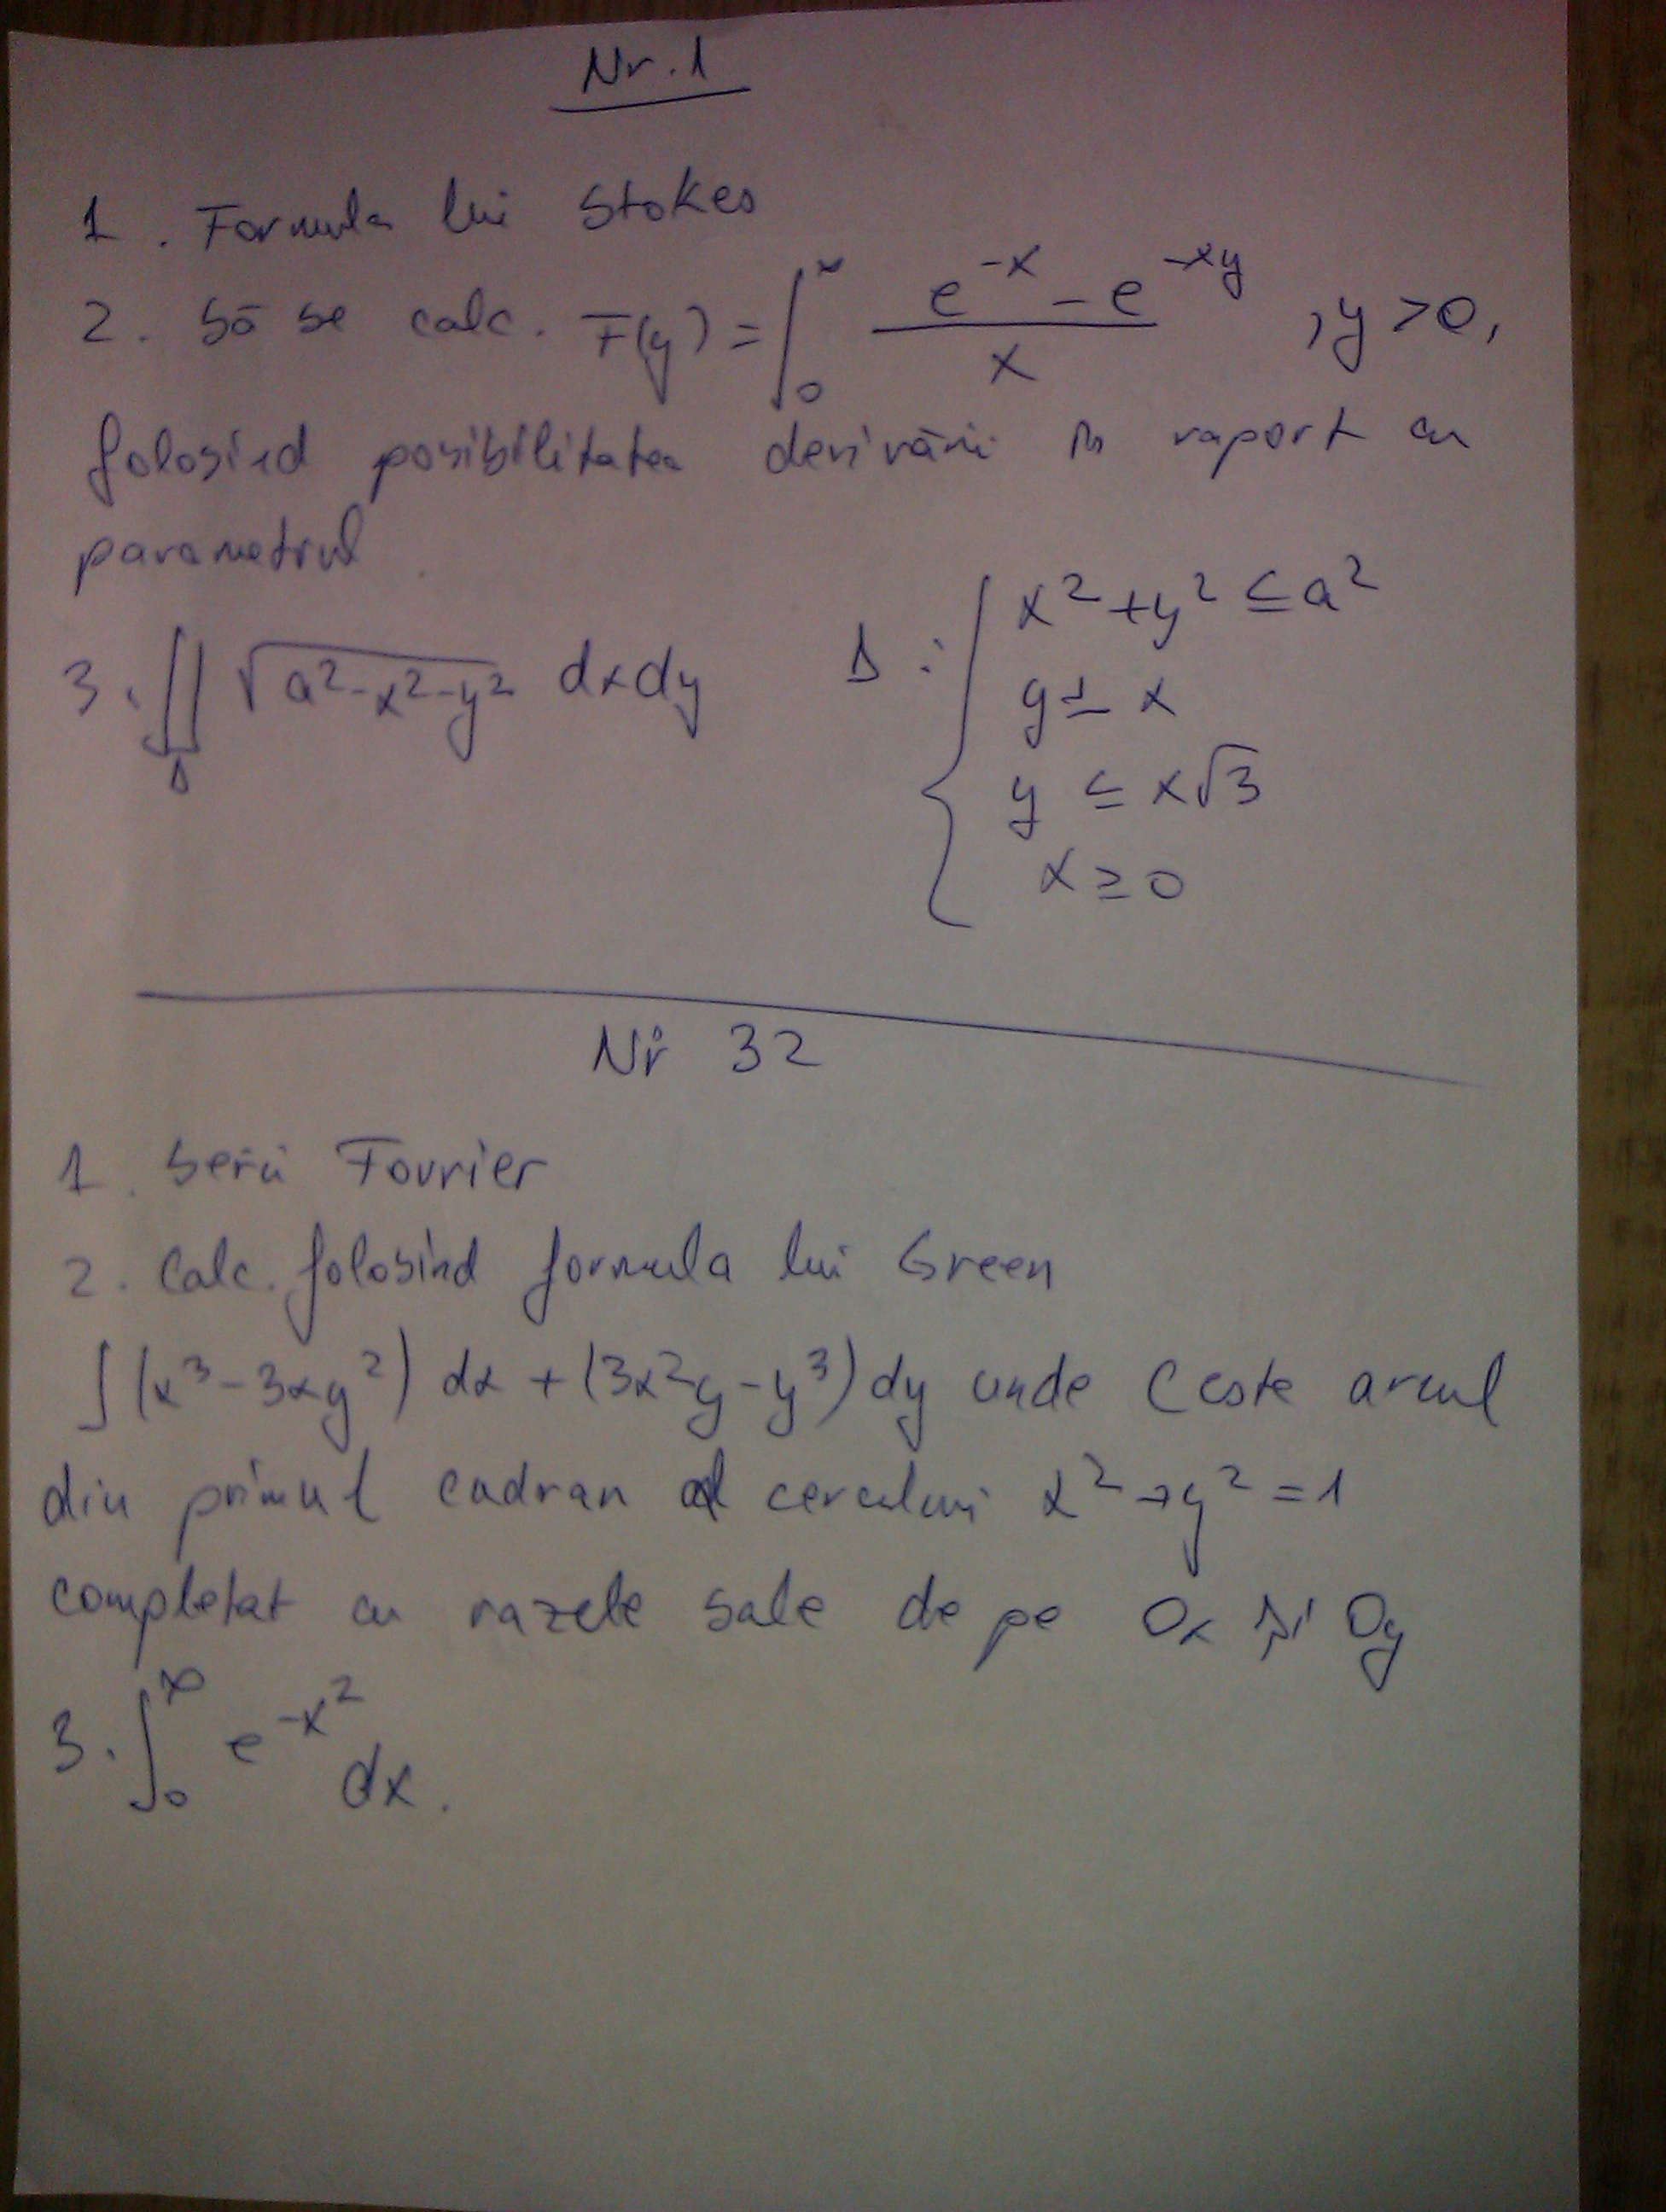 Nr. 1
1. Formula lui Stokes
2. Să se calc. F(y) = ∫₀^∞ (e^{-x} - e^{-xy}) / x , y > 0,
folosind posibilitatea derivării în raport cu
parametrul
3. ∬_D √(a² - x² - y²) dxdy D : { x² + y² ≤ a²
y ≥ x
y ≤ x√3
x ≥ 0
Nr 32
1. Serii Fourier
2. Calc. folosind formula lui Green
∫ (x³ - 3xy²) dx + (3x²y - y³) dy unde C este arcul
din primul cadran al cercului x² + y² = 1
completat cu razele sale de pe Ox și Oy
3. ∫₀^∞ e^{-x²} dx.